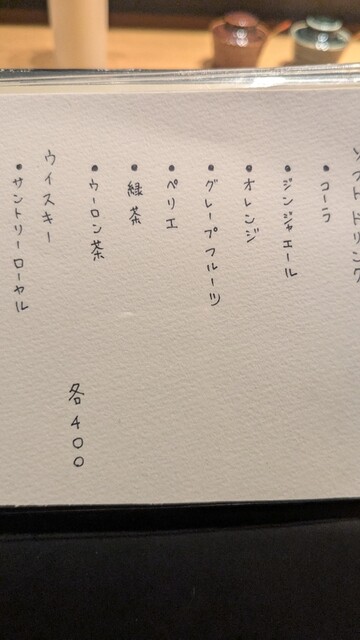 ソフトドリンク
・コーラ
・ジンジャエール
・オレンジ
・グレープフルーツ
・ペリエ
・緑茶
・ウーロン茶
各400
ウイスキー
・サントリーローヤル